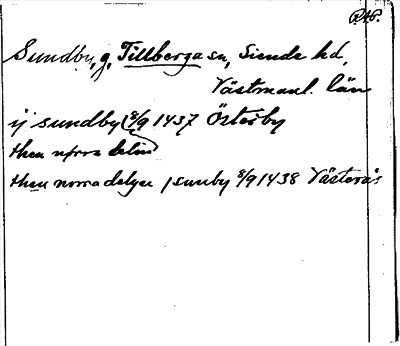 RAP.
Sundby, g, Tillberga sn, Siende hd,
Västmanl. län
ij sundby 8/9 1437 Östesby
then nørra delin
then norra delgen j sunby 8/9 1438 Västerås